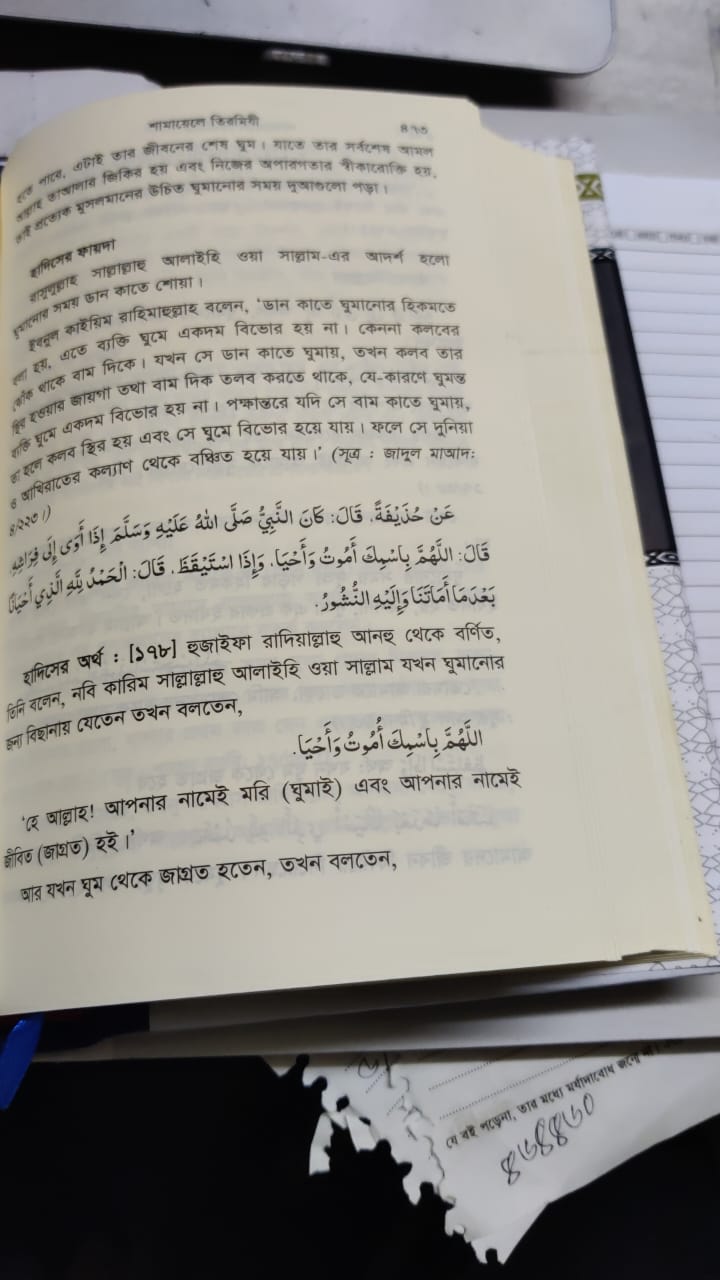 শামায়েলে তিরমিযী ৪৭৩
হতে পারে, এটাই তার জীবনের শেষ ঘুম। যাতে তার সর্বশেষ আমল
আল্লাহ তাআলার জিকির হয় এবং নিজের অপারগতার স্বীকারোক্তি হয়,
তাই প্রত্যেক মুসলমানের উচিত ঘুমানোর সময় দুআগুলো পড়া।
হাদিসের ফায়দা
রাসুলুল্লাহ সাল্লাল্লাহু আলাইহি ওয়া সাল্লাম-এর আদর্শ হলো
ঘুমানোর সময় ডান কাতে শোয়া।
ইবনুল কাইয়িম রাহিমাহুল্লাহ বলেন, ‘ডান কাতে ঘুমানোর হিকমতে
বলা হয়, এতে ব্যক্তি ঘুমে একদম বিভোর হয় না। কেননা কলবের
ঝোঁক থাকে বাম দিকে। যখন সে ডান কাতে ঘুমায়, তখন কলব তার
স্থির হওয়ার জায়গা তথা বাম দিক তলব করতে থাকে, যে-কারণে ঘুমন্ত
ব্যক্তি ঘুমে একদম বিভোর হয় না। পক্ষান্তরে যদি সে বাম কাতে ঘুমায়,
তা হলে কলব স্থির হয় এবং সে ঘুমে বিভোর হয়ে যায়। ফলে সে দুনিয়া
ও আখিরাতের কল্যাণ থেকে বঞ্চিত হয়ে যায়।’ (সূত্র : জাদুল মাআদ:
৪/২২৩।)
عَنْ حُذَيْفَةَ، قَالَ: كَانَ النَّبِيُّ صَلَّى اللهُ عَلَيْهِ وَسَلَّمَ إِذَا أَوَى إِلَى فِرَاشِهِ
قَالَ: اللَّهُمَّ بِاسْمِكَ أَمُوتُ وَأَحْيَا، وَإِذَا اسْتَيْقَظَ، قَالَ: الْحَمْدُ لِلَّهِ الَّذِي أَحْيَانَا
بَعْدَمَا أَمَاتَنَا وَإِلَيْهِ النُّشُورُ.
হাদিসের অর্থ : [১৭৮] হুজাইফা রাদিয়াল্লাহু আনহু থেকে বর্ণিত,
তিনি বলেন, নবি কারিম সাল্লাল্লাহু আলাইহি ওয়া সাল্লাম যখন ঘুমানোর
জন্য বিছানায় যেতেন তখন বলতেন,
اللَّهُمَّ بِاسْمِكَ أَمُوتُ وَأَحْيَا.
‘হে আল্লাহ! আপনার নামেই মরি (ঘুমাই) এবং আপনার নামেই
জীবিত (জাগ্রত) হই।’
আর যখন ঘুম থেকে জাগ্রত হতেন, তখন বলতেন,
যে বই পড়েনা, তার মধ্যে মর্যাদাবোধ জন্মে না।